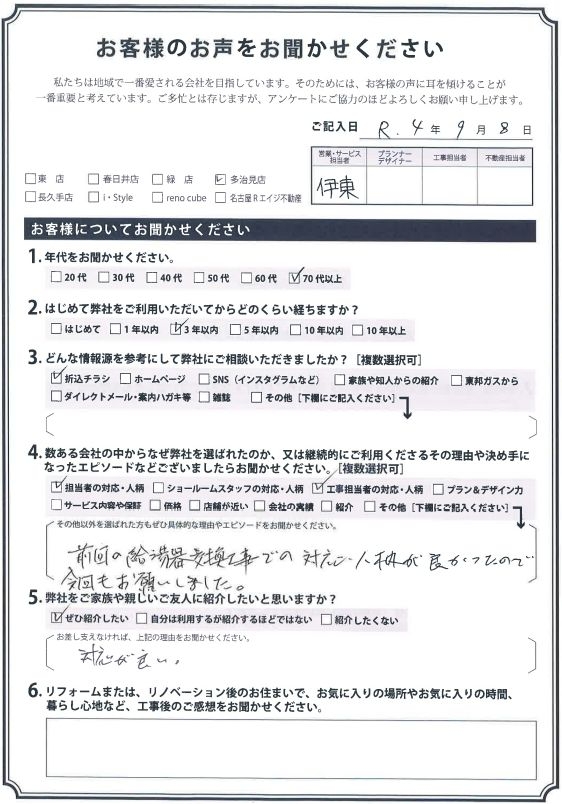 お客様のお声をお聞かせください
私たちは地域で一番愛される会社を目指しています。そのためには、お客様の声に耳を傾けることが
一番重要と考えています。ご多忙とは存じますが、アンケートにご協力のほどよろしくお願い申し上げます。
ご記入日 R.4年9月8日
営業・サービス担当者 プランナーデザイナー 工事担当者 不動産担当者
伊東
□東 店 □春日井店 □緑 店 ☑多治見店
□長久手店 □i・Style □reno cube □名古屋Rエイジ不動産
お客様についてお聞かせください
1. 年代をお聞かせください。
□20代 □30代 □40代 □50代 □60代 ☑70代以上
2. はじめて弊社をご利用いただいてからどのくらい経ちますか？
□はじめて □1年以内 ☑3年以内 □5年以内 □10年以内 □10年以上
3. どんな情報源を参考にして弊社にご相談いただきましたか？［複数選択可］
☑折込チラシ □ホームページ □SNS（インスタグラムなど） □家族や知人からの紹介 □東邦ガスから
□ダイレクトメール・案内ハガキ等 □雑誌 □その他［下欄にご記入ください］
4. 数ある会社の中からなぜ弊社を選ばれたのか、又は継続的にご利用くださるその理由や決め手に
なったエピソードなどございましたらお聞かせください。［複数選択可］
☑担当者の対応・人柄 □ショールームスタッフの対応・人柄 ☑工事担当者の対応・人柄 □プラン＆デザイン力
□サービス内容や保証 □価格 □店舗が近い □会社の実績 □紹介 □その他［下欄にご記入ください］
その他以外を選ばれた方もぜひ具体的な理由やエピソードをお聞かせください。
前回の給湯器交換工事での対応、人柄が良かったので
今回もお願いしました。
5. 弊社をご家族や親しいご友人に紹介したいと思いますか？
☑ぜひ紹介したい □自分は利用するが紹介するほどではない □紹介したくない
お差し支えなければ、上記の理由をお聞かせください。
対応が良い。
6. リフォームまたは、リノベーション後のお住まいで、お気に入りの場所やお気に入りの時間、
暮らし心地など、工事後のご感想をお聞かせください。